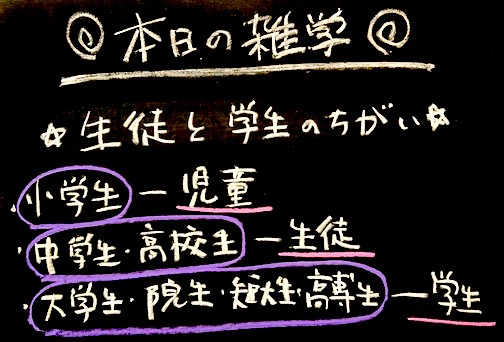 本日の雑学
☆生徒と学生のちがい☆
・小学生―児童
・中学生・高校生―生徒
・大学生・院生・短大生・高専生―学生